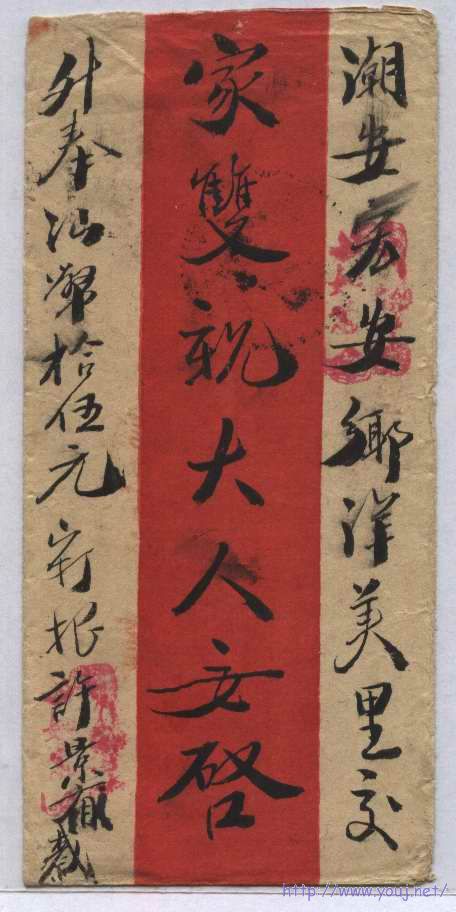 潮安宏安鄉洋美里交
家雙親大人安啓
外奉汕幣拾伍元 許景
http://www.youj.net/